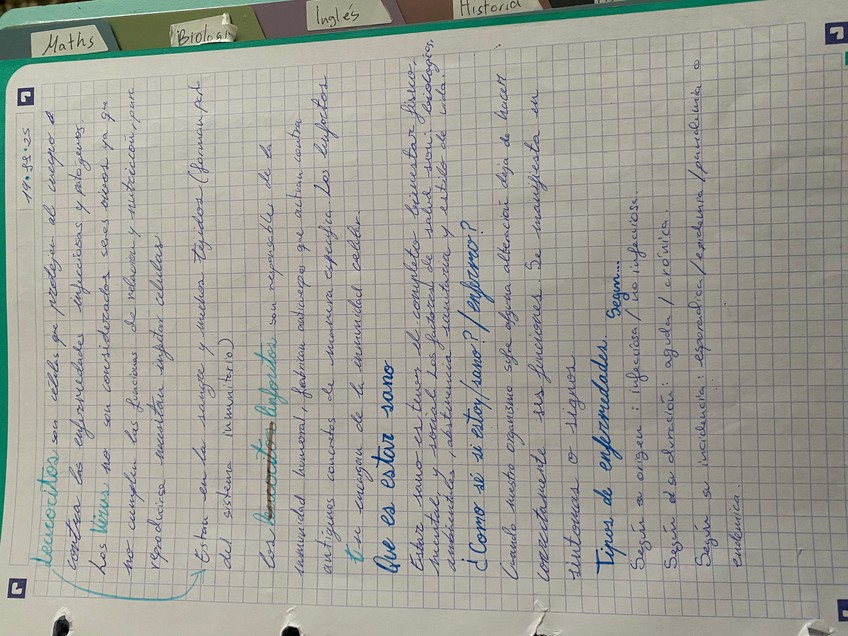 Maths
Biología
Inglés
Historia
Leucocitos son células que protejen al cuerpo d
contra las enfermedades infecciosas y patógenos.
Los Virus no son considerados seres vivos ya que
no cumplen las funciones de relación y nutrición, para
reproducirse necesitan infectar células.
Estan en la sangre y muchos tejidos (forman parte
del sistema inmunitario)
Los linfocitos son responsables de la
inmunidad humoral, fabrican anticuerpos que actuan contra
antígenos concretos de manera específica. Los linfocitos
t se encargan de la inmunidad celular.
Que es estar sano
Estar sano es tener el completo bienestar físico,
mental y social. Los factores de salud son: biologico,
ambientales, asistencia sanitaria y estilo de vida.
¿Como sé si estoy sano? / enfermo?
Cuando nuestro organismo sufre alguna alteración deja de hacer
correctamente sus funciones. Se manifiesta en
sintomas o signos
Tipos de enfermedades. Según...
Según su origen: infecciosa / no infecciosa.
Según su duración: aguda / crónica.
Según su incidencia: esporádica / epidemia / pandemia o
endémica.